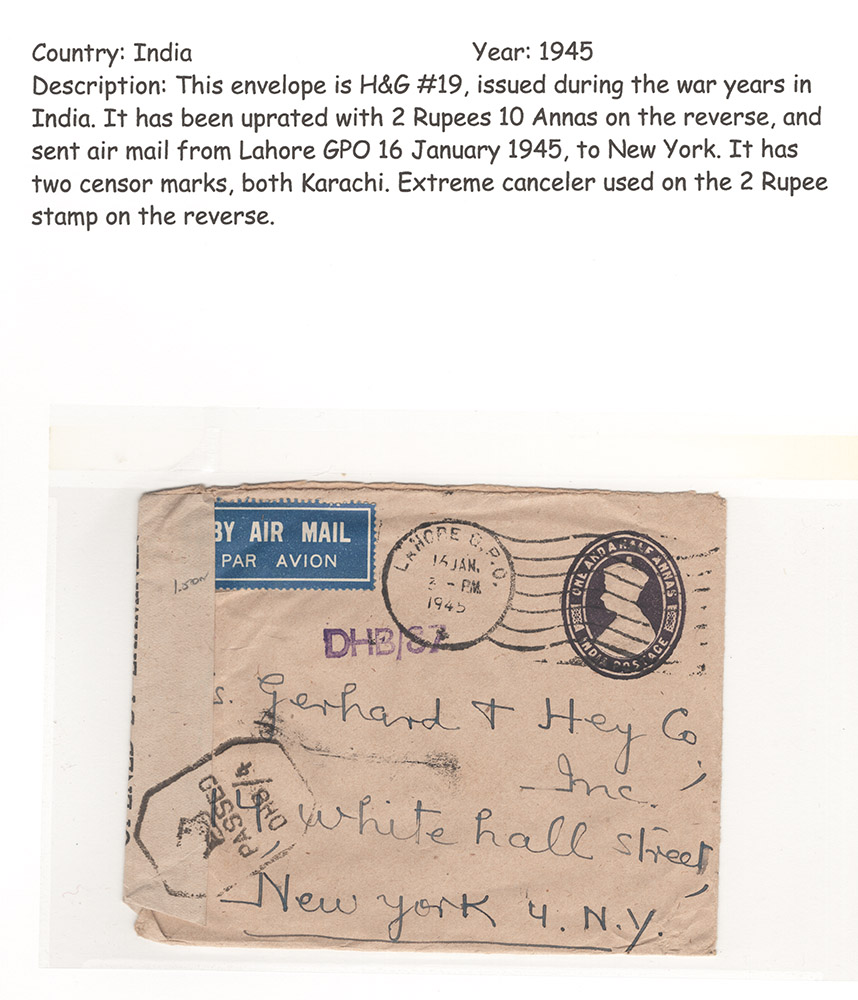 Country: India Year: 1945
Description: This envelope is H&G #19, issued during the war years in
India. It has been uprated with 2 Rupees 10 Annas on the reverse, and
sent air mail from Lahore GPO 16 January 1945, to New York. It has
two censor marks, both Karachi. Extreme canceler used on the 2 Rupee
stamp on the reverse.
BY AIR MAIL
PAR AVION
LAHORE G.P.O.
16 JAN.
3 - PM
1945
ONE AND A HALF ANNAS
INDIA POSTAGE
1.50N
DHB/37
s. Gerhard & Hey Co
Inc.
PASSED
DHB/4
14 White hall street
New york 4. N.Y.
OPENED BY EXAMINER